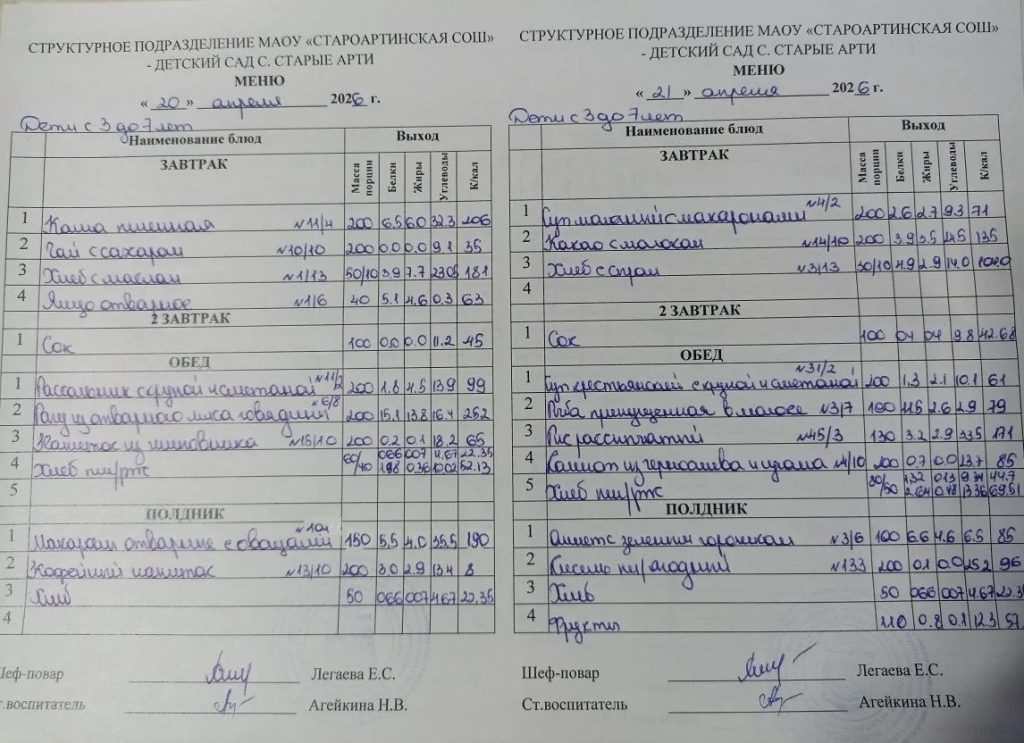 СТРУКТУРНОЕ ПОДРАЗДЕЛЕНИЕ МАОУ «СТАРОАРТИНСКАЯ СОШ»
- ДЕТСКИЙ САД С. СТАРЫЕ АРТИ
МЕНЮ
« 20 » апреля 2026 г.
Дети с 3 до 7 лет
Наименование блюд Выход
ЗАВТРАК Масса порции Белки Жиры Углеводы К/кал
1 Каша пшенная №11/4 200 6.5 6.0 32.3 206
2 Чай с сахаром №10/10 200 0.0 0.0 9.1 35
3 Хлеб с маслом №1/13 50/10 3.9 7.7 23.05 181
4 Яйцо отварное №1/6 40 5.1 4.6 0.3 63
2 ЗАВТРАК
1 Сок 100 0.0 0.0 11.2 45
ОБЕД
1 Рассольник с крупой и сметаной №11/2 200 1.8 4.5 13.9 99
2 Рагу из отварного мяса говядины №6/8 200 15.1 13.8 16.4 252
3 Напиток из шиповника №15/10 200 0.2 0.1 18.2 65
4 Хлеб пш/рж 60/40 066 007 4.67 22.35
1.98 0.36 10.02 52.13
5
ПОЛДНИК
1 Макароны отварные с овощами 150 5.5 4.0 35.5 190
2 Кофейный напиток №13/10 200 3.0 2.9 13.4 8
3 Хлеб 50 066 007 4.67 22.35
4
Шеф-повар Легаева Е.С.
Ст.воспитатель Агейкина Н.В.
СТРУКТУРНОЕ ПОДРАЗДЕЛЕНИЕ МАОУ «СТАРОАРТИНСКАЯ СОШ»
- ДЕТСКИЙ САД С. СТАРЫЕ АРТИ
МЕНЮ
« 21 » апреля 2026 г.
Дети с 3 до 7 лет
Наименование блюд Выход
ЗАВТРАК Масса порции Белки Жиры Углеводы К/кал
1 Суп молочный с макаронами №4/2 200 2.6 2.7 9.3 71
2 Какао с молоком №14/10 200 3.9 3.5 135
3 Хлеб с сыром №3/13 30/10 4.9 2.9 14.0
4
2 ЗАВТРАК
1 Сок 100 04 04 9.8 42.68
ОБЕД
1 Суп крестьянский с крупой и сметаной №31/2 200 1.3 2.1 10.1 61
2 Рыба припущенная в молоке №3/7 100 2.6 2.9 79
3 Рис рассыпчатый №45/3 130 3.2 2.9 33.5 171
4 Компот из №4/10 200 0.7 0.0 23.7 85
5 Хлеб пш/рж 80/50 132 013 9.34 44.7
2.64 0.48 13.36 69.51
ПОЛДНИК
1 Омлет с зеленым горошком №3/6 100 6.6 4.6 6.5 85
2 Кисель №133 200 0.1 0.0 25.2 96
3 Хлеб 50 066 007 4.67 22.35
4 Фрукты 110 0.8 0.1 12.3 57
Шеф-повар Легаева Е.С.
Ст.воспитатель Агейкина Н.В.